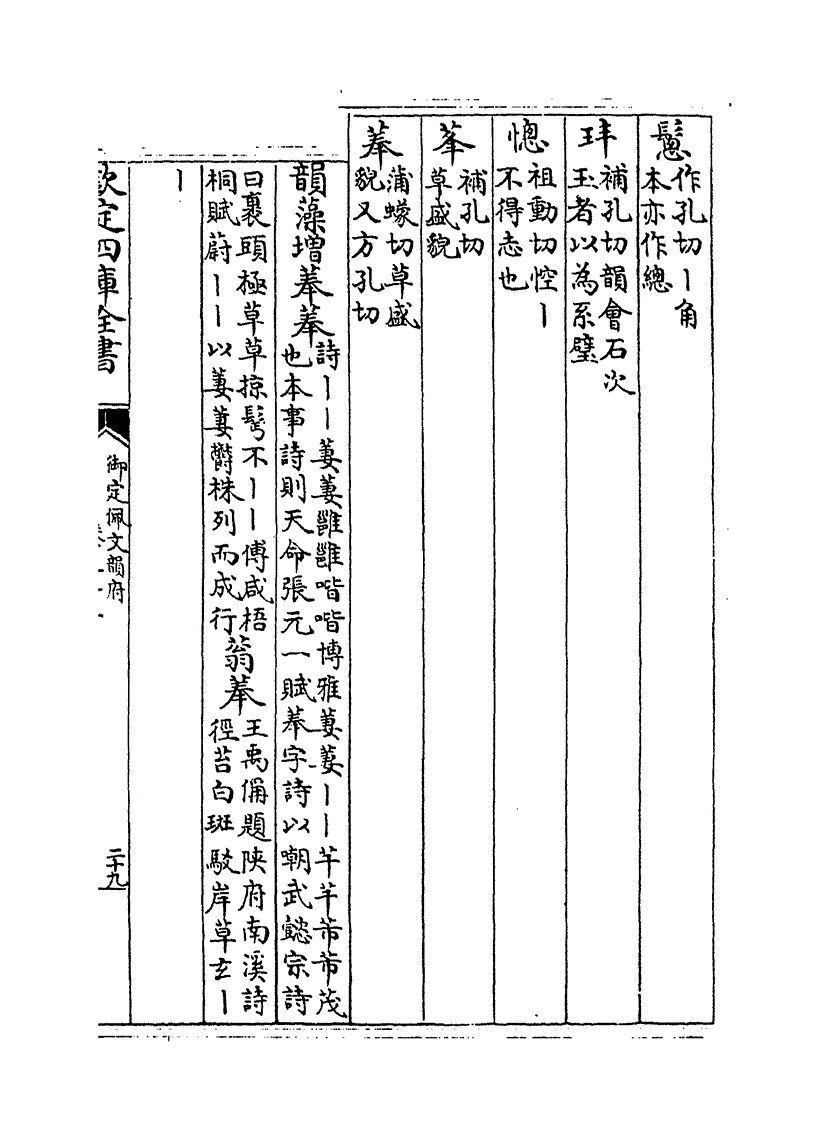 鬉作孔切｜角
本亦作總
玤補孔切韻會石次
玉者以為系璧
惚祖動切悾｜
不得志也
菶補孔切
草盛貌
菶蒲蠓切草盛
貌又方孔切
韻藻增菶菶詩｜｜萋萋雝雝喈喈博雅萋萋｜｜芊芊芾芾茂
也本事詩則天命張元一賦菶字詩以嘲武懿宗詩
曰裹頭極草草掠鬢不｜｜傅咸梧
桐賦蔚｜｜以萋萋鬱株列而成行
蓊菶王禹偁題陝府南溪詩
徑苔白斑駮岸草玄｜
｜
欽定四庫全書
御定佩文韻府
二十九